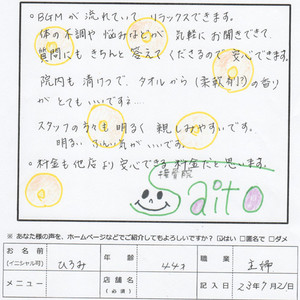 ○BGMが流れていて、リラックスできます。
体の不調や悩みなどが気軽にお聞きできて、
質問にもきちんと答えてくださるので安心できます。
院内も清けつで、タオルから(柔軟剤!?)の香り
がとてもいいです…
スタッフの方々も明るく親しみやすいです。
明るいふん囲気がいいです。
○料金も他店より安心できる料金だと思います。
接骨院
Saito
※あなた様の声を、ホームページなどでご紹介してもよろしいですか?☑はい □匿名で □ダメ
お名前
(イニシャル可)
ひろみ
年齢
44才
職業
主婦
メニュー
店舗名
(必須)
記入日
23年9月21日